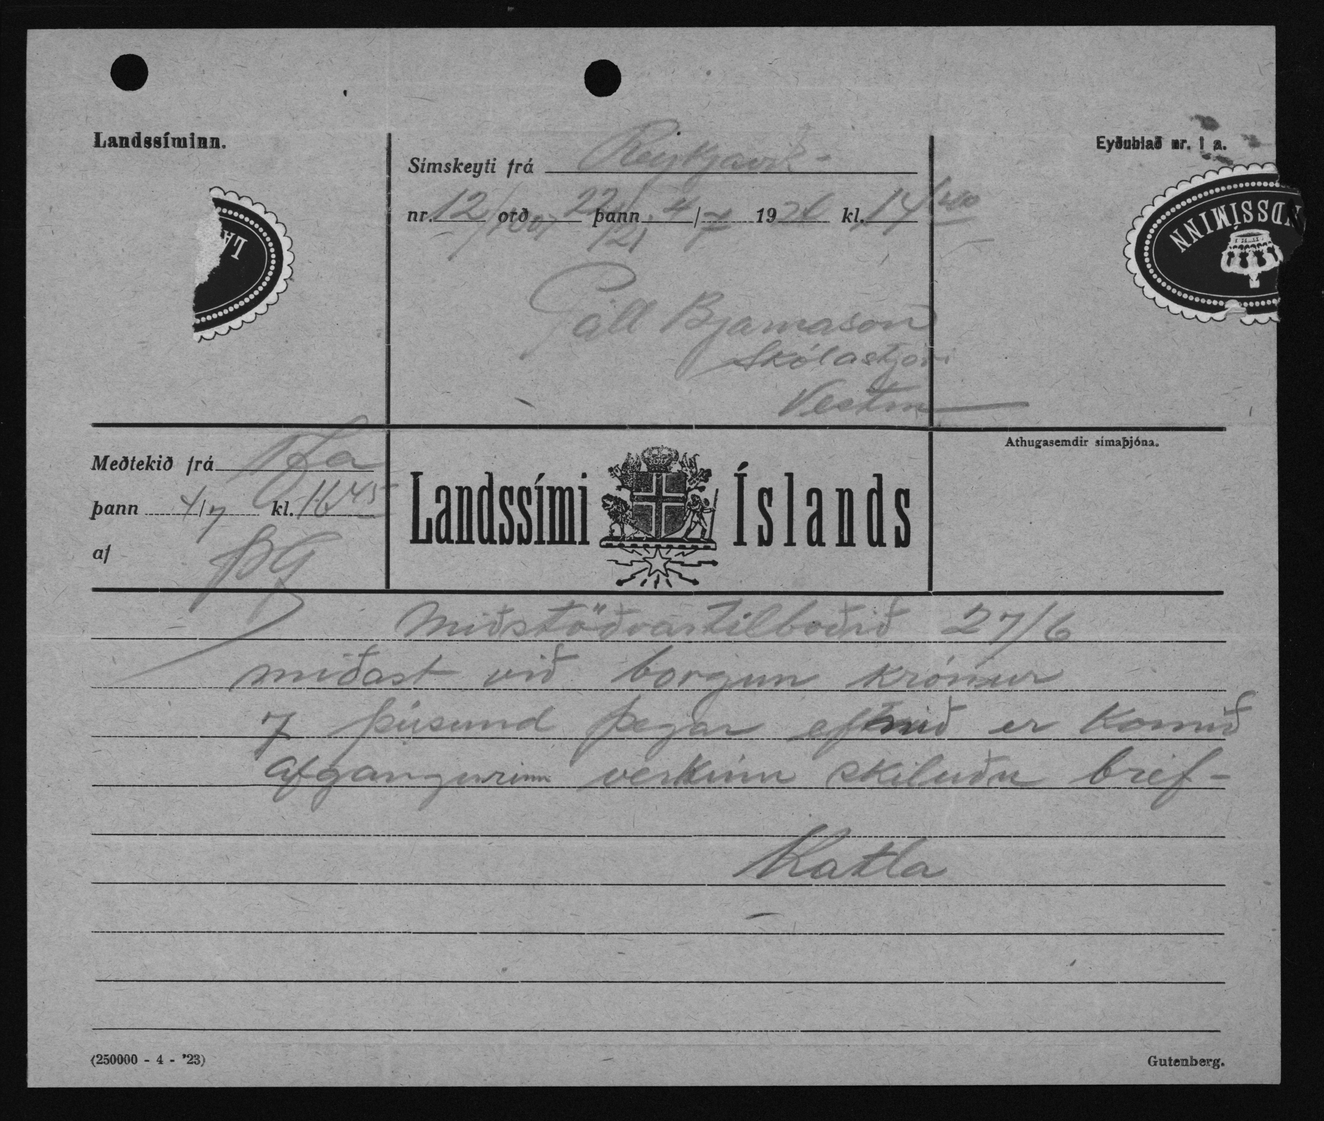 Landssíminn.
Eyðublað nr. 1 a.
Símskeyti frá Reykjavík -
nr. 12 orð 22 þann 4/7 19 kl. 14/40
LA
NDSSÍMINN
Páll Bjarnason
Skólastjóri
Vestm
Meðtekið frá
þann 4/7 kl. 16 45
af ÞG
Landssími Íslands
Athugasemdir símaþjóna.
Miðstöðvartilboðið 27/6
miðast við borgun krónur
7 þúsund þegar efnið er komið
afgangurinn verkinu skiluðu bréf -
Katla
(250000 - 4 - '23)
Gutenberg.